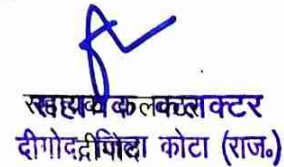 सहायक कलक्टर
दीगोद जिला कोटा (राज.)